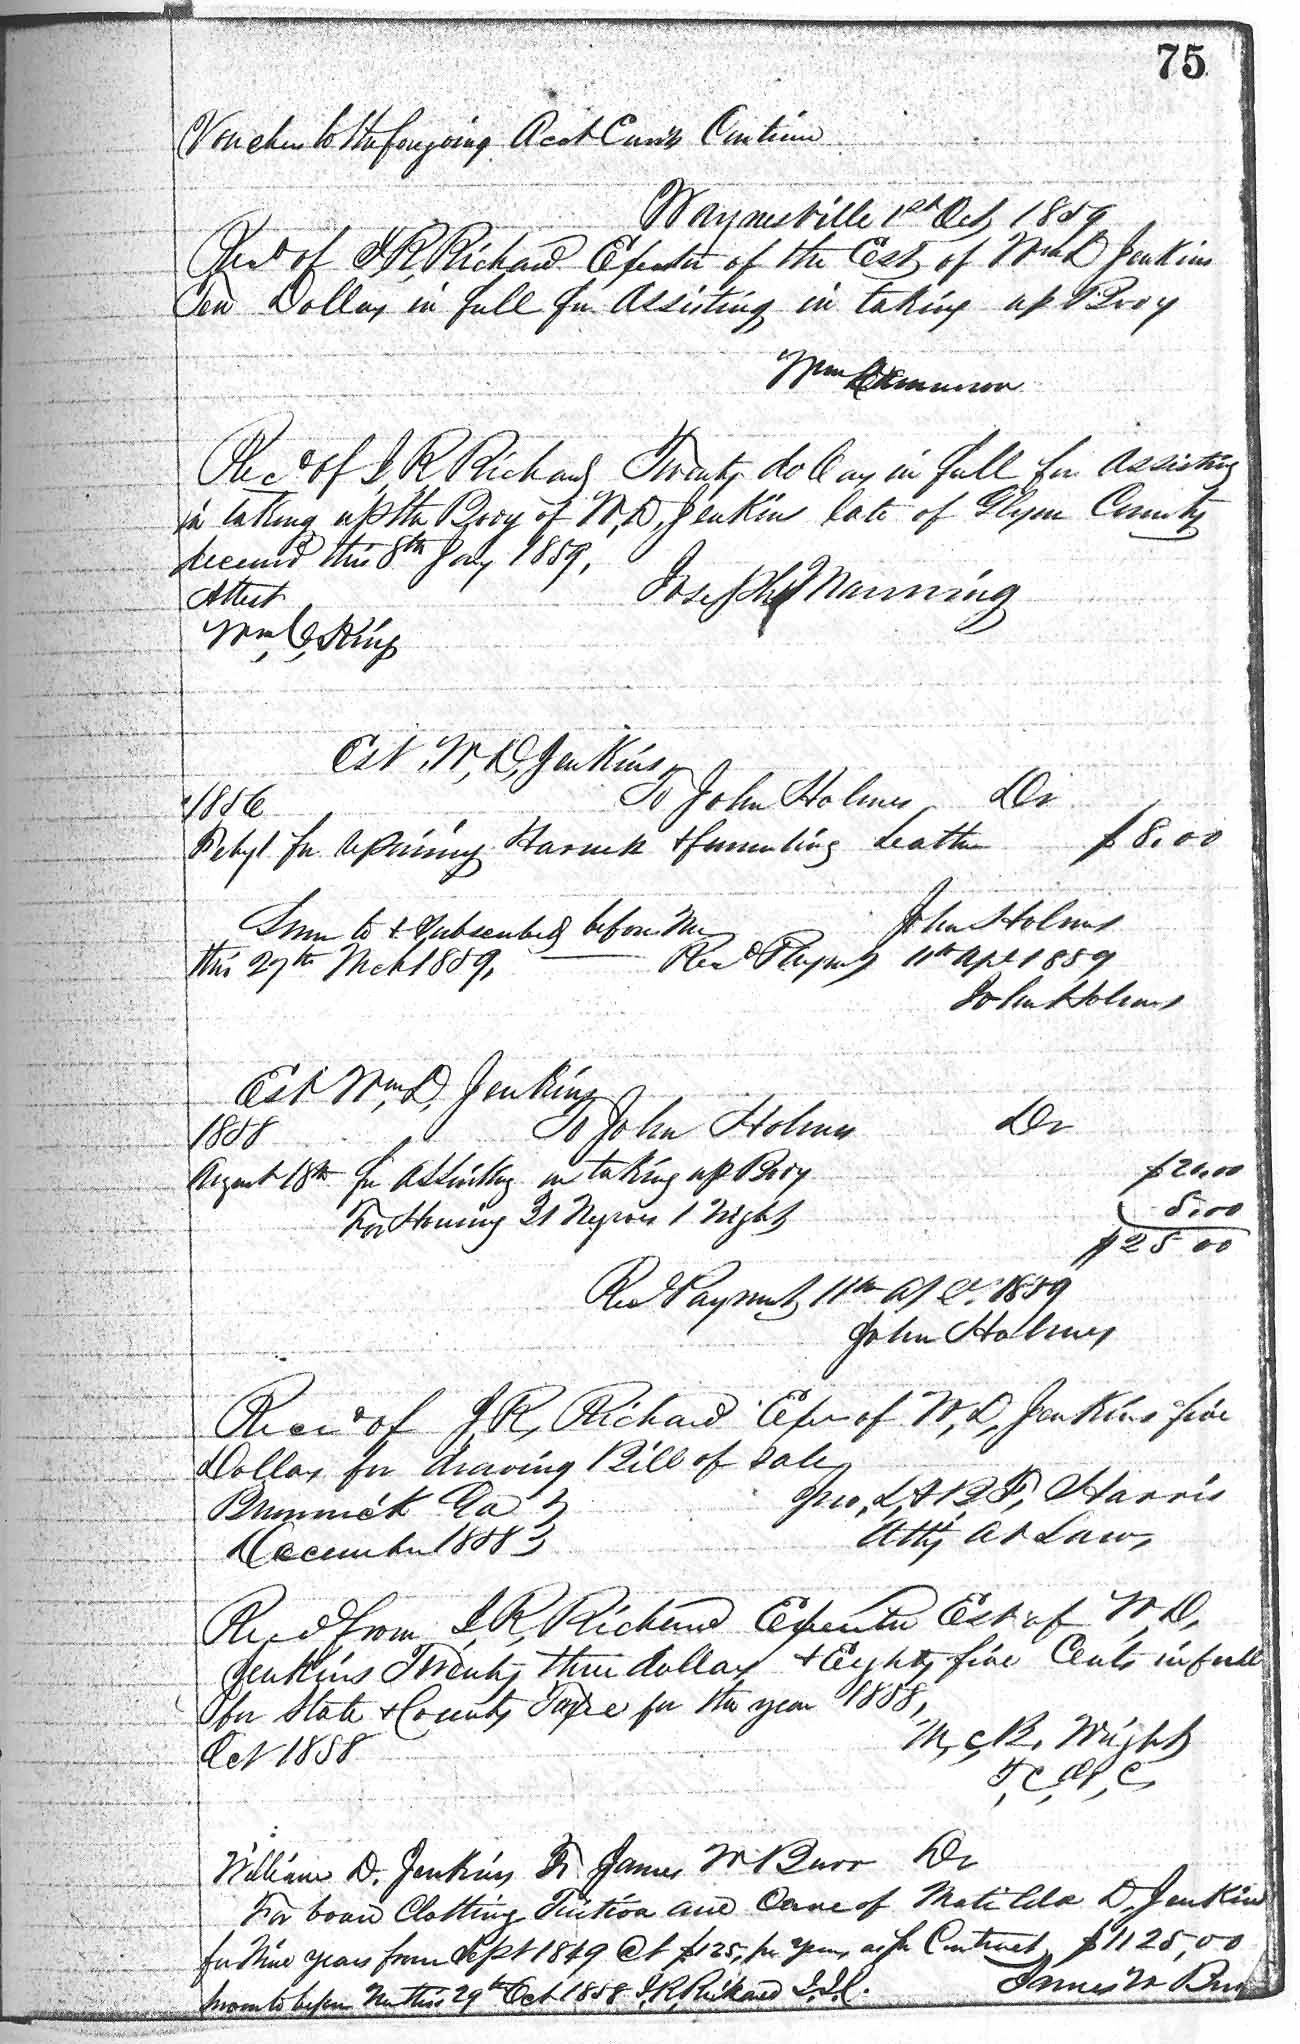 75
Vouchers to the foregoing Acct Curr Continue
Waynesville 1st Oct 1859
Recd of J R Richard Executor of the Est of Wm D Jenkins
Ten Dollars in full for Assisting in taking up Body
Wm
Recd of J R Richard Twenty dollars in full for Assisting
in taking up the Body of W, D, Jenkins late of Glynn County
deceased this 8th Jany 1859,
Attest
Joseph Manning
Wm, C, King
Est W, D, Jenkins,
1856 To John Holmes Dr
Feby 1 for repairing Harness & furnishing Leather $8.00
Sworn to & Subscribed before Me John Holmes
this 29th Mch 1859, Recd Payment 11th Apl 1859
John Holmes
Est Wm, D, Jenkins
1858 To John Holmes Dr
August 18th for assisting in taking up Body $20.00
For Housing 21 Negroes 1 Night 5.00
$25 00
Recd Payment 11th Apl 1859
John Holmes
Recd of J, R, Richard Exr of W, D, Jenkins five
Dollars for drawing Bill of Sale
Brunswick Ga Jno, L, & B F, Harris
December 1858 Atty at Law,
Recd from J, R, Richard Executor Est of W, D,
Jenkins Twenty three dollars & Eighty five Cents in full
for State & County Taxe for the year 1858,
Oct 1858 M, c, R, Wright
T, C, G, C,
William D. Jenkins To James W Burr Dr
For board Clothing Tuition and Care of Matilda D, Jenkins
for Nine years from Sept 1849 at $125, per year, as per Contract $1125,00
Sworn to before Me this 29th Oct 1858 J, R, Richard J.I.C. James W Burr